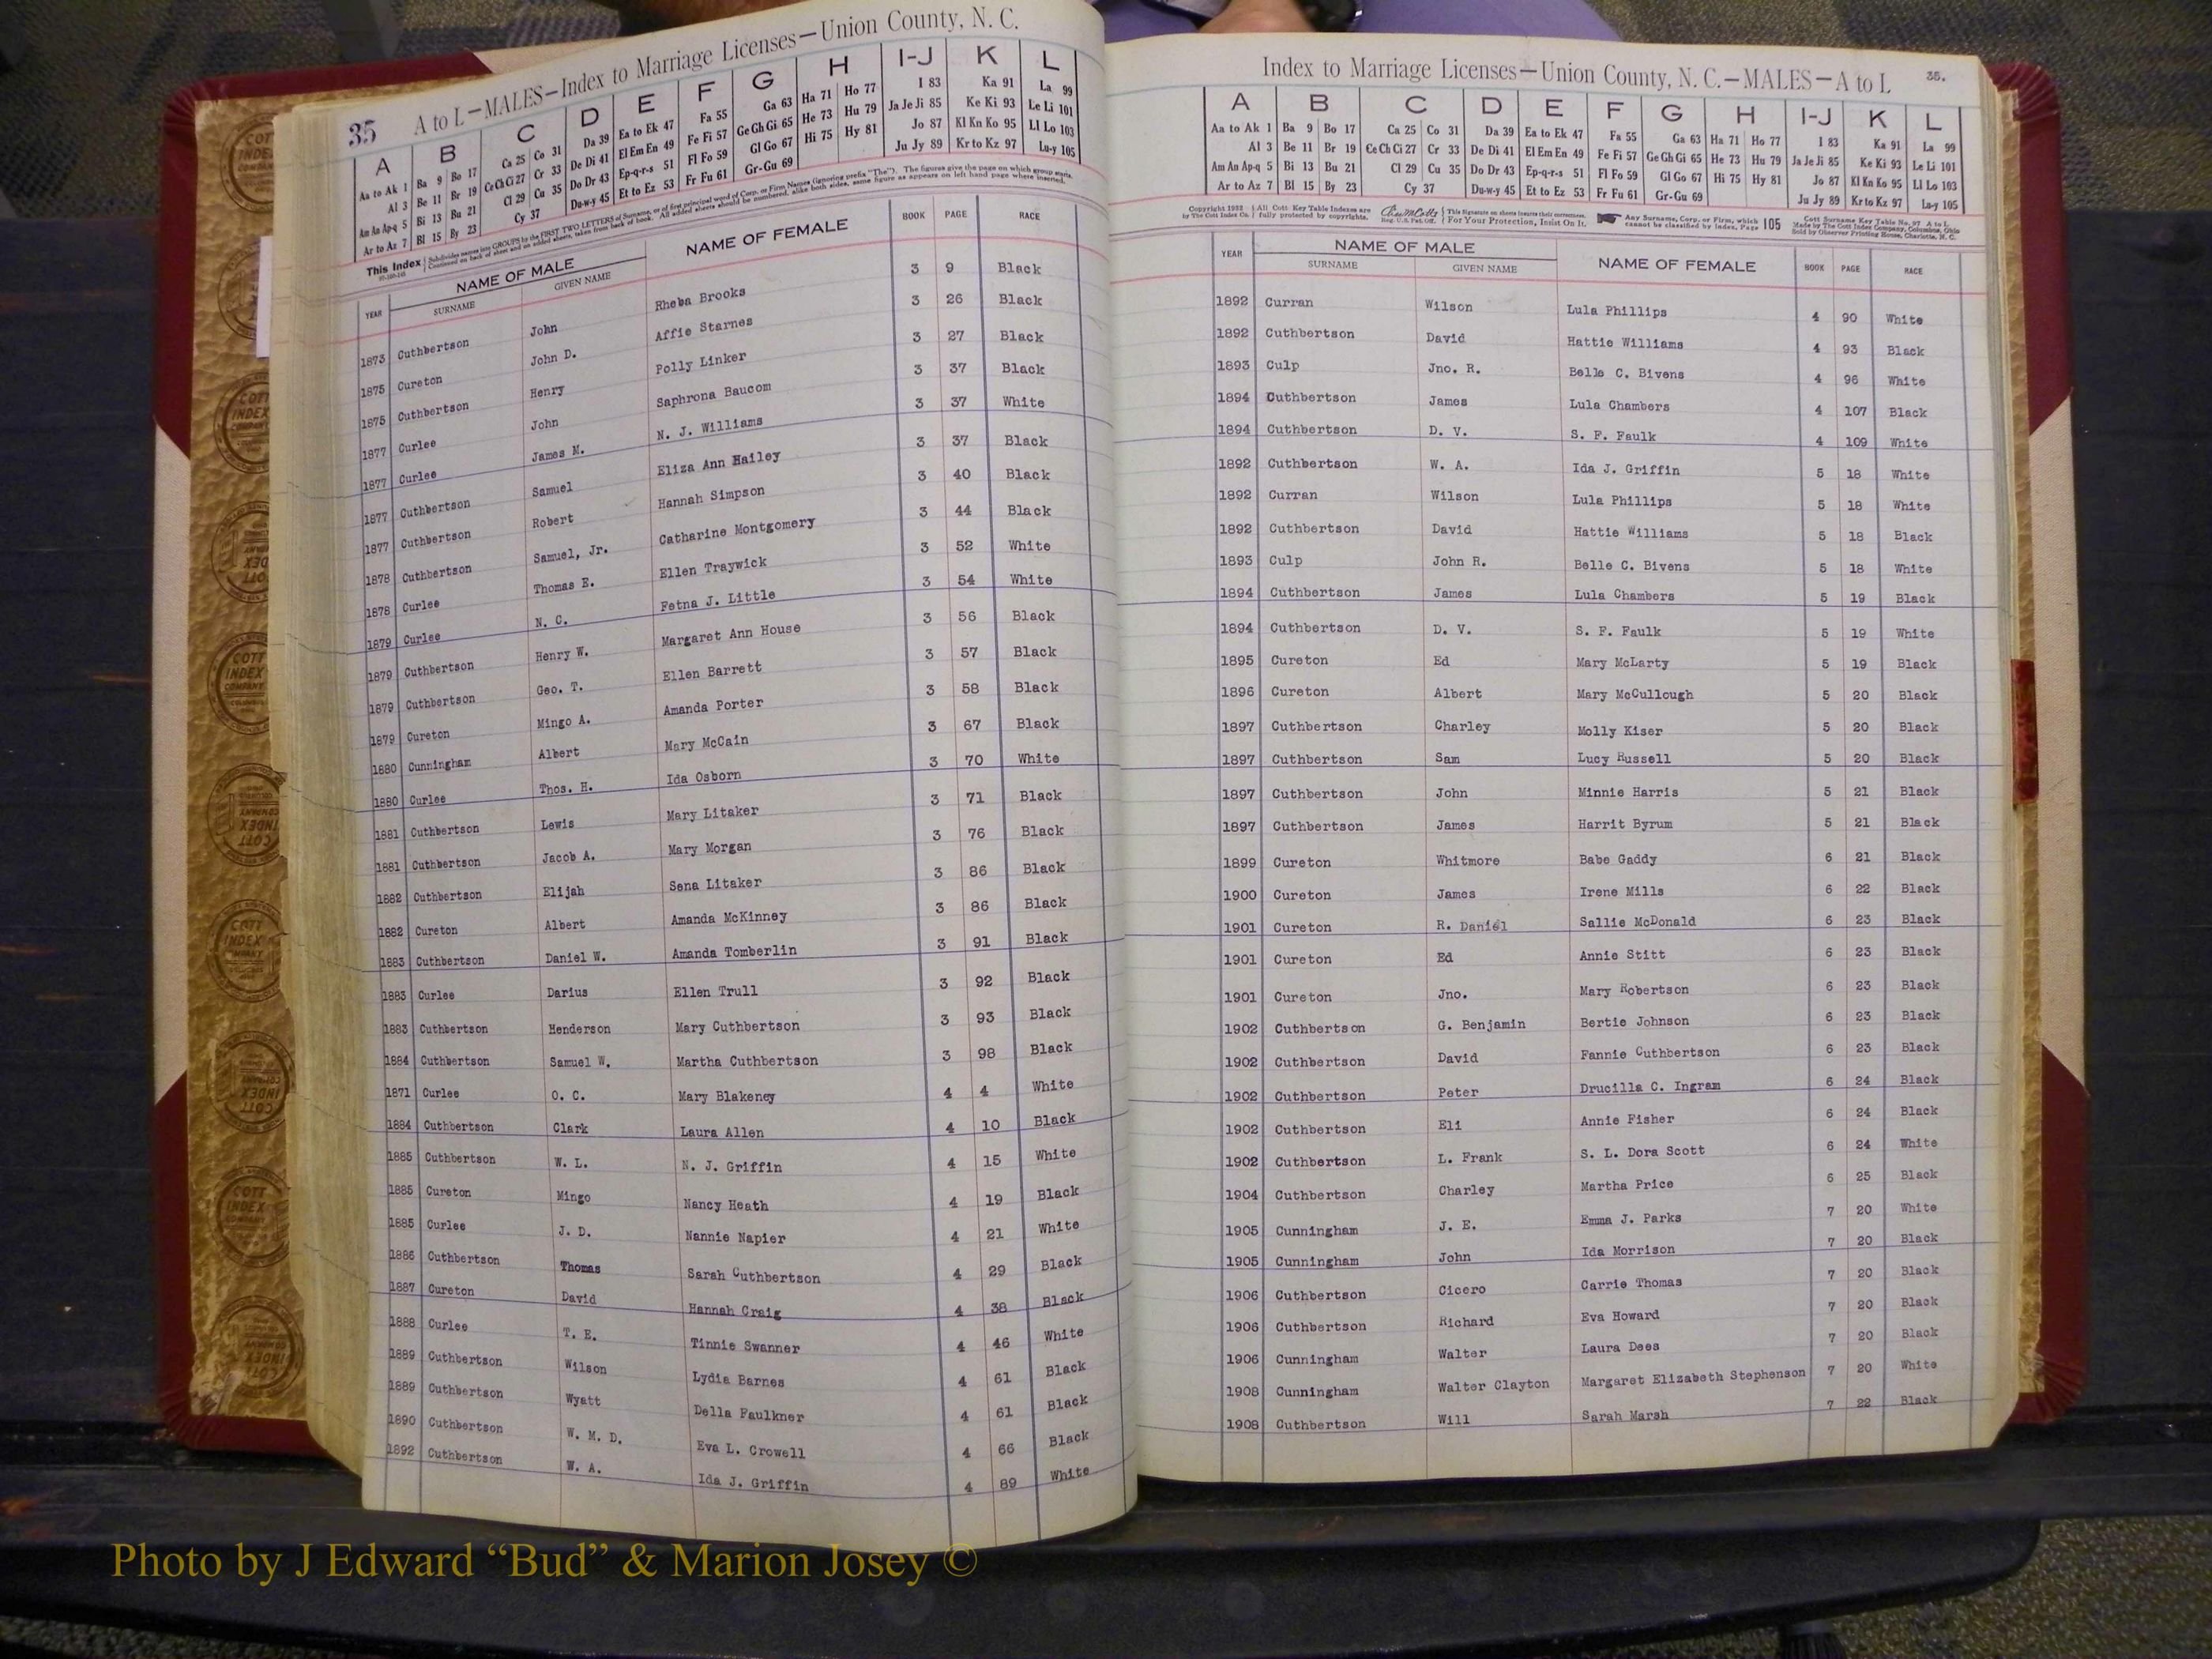 35 A to L—MALES—Index to Marriage Licenses—Union County, N. C.
A B C D E F G H I-J K L
Aa to Ak 1 Ba 9 Bo 17 Ca 25 Co 31 Da 39 Ea to Ek 47 Fa 55 Ga 63 Ha 71 Ho 77 I 83 Ka 91 La 99
Al 3 Be 11 Br 19 Ce Ch Ci 27 Cr 33 De Di 41 El Em En 49 Fe Fi 57 Ge Gh Gi 65 He 73 Hu 79 Ja Je Ji 85 Ke Ki 93 Le Li 101
Am An Ap-q 5 Bi 13 Bu 21 Cl 29 Cu 35 Do Dr 43 Ep-q-r-s 51 Fl Fo 59 Gl Go 67 Hi 75 Hy 81 Jo 87 Kl Kn Ko 95 Ll Lo 103
Ar to Az 7 Bl 15 By 23 Cy 37 Du-w-y 45 Et to Ez 53 Fr Fu 61 Gr-Gu 69 Ju Jy 89 Kr to Kz 97 Lu-y 105
This Index Subdivides names into GROUPS by the FIRST TWO LETTERS of Surname, or of first principal word of Corp. or Firm Names (ignoring prefix "The"). The figures give the page on which group starts.
Continued on back of sheet and on added sheets, taken from back of book. All added sheets should be numbered, alike both sides, same figure as appears on left hand page where inserted.
YEAR NAME OF MALE NAME OF FEMALE BOOK PAGE RACE
SURNAME GIVEN NAME
1873 Cuthbertson John Rheba Brooks 3 9 Black
1875 Cureton John D. Affie Starnes 3 26 Black
1875 Cuthbertson Henry Polly Linker 3 27 Black
1877 Curlee John Saphrona Baucom 3 37 Black
1877 Curlee James M. N. J. Williams 3 37 White
1877 Cuthbertson Samuel Eliza Ann Hailey 3 37 Black
1877 Cuthbertson Robert Hannah Simpson 3 40 Black
1878 Cuthbertson Samuel, Jr. Catharine Montgomery 3 44 Black
1878 Curlee Thomas E. Ellen Traywick 3 52 White
1879 Curlee N. C. Fetna J. Little 3 54 White
1879 Cuthbertson Henry W. Margaret Ann House 3 56 Black
1879 Cuthbertson Geo. T. Ellen Barrett 3 57 Black
1879 Cureton Mingo A. Amanda Porter 3 58 Black
1880 Cunningham Albert Mary McCain 3 67 Black
1880 Curlee Thos. H. Ida Osborn 3 70 White
1881 Cuthbertson Lewis Mary Litaker 3 71 Black
1881 Cuthbertson Jacob A. Mary Morgan 3 76 Black
1882 Cuthbertson Elijah Sena Litaker 3 86 Black
1882 Cureton Albert Amanda McKinney 3 86 Black
1883 Cuthbertson Daniel W. Amanda Tomberlin 3 91 Black
1883 Curlee Darius Ellen Trull 3 92 Black
1883 Cuthbertson Henderson Mary Cuthbertson 3 93 Black
1884 Cuthbertson Samuel W. Martha Cuthbertson 3 98 Black
1871 Curlee O. C. Mary Blakeney 4 4 White
1884 Cuthbertson Clark Laura Allen 4 10 Black
1885 Cuthbertson W. L. N. J. Griffin 4 15 White
1885 Cureton Mingo Nancy Heath 4 19 Black
1885 Curlee J. D. Nannie Napier 4 21 White
1886 Cuthbertson Thomas Sarah Cuthbertson 4 29 Black
1887 Cureton David Hannah Craig 4 38 Black
1888 Curlee T. E. Tinnie Swanner 4 46 White
1889 Cuthbertson Wilson Lydia Barnes 4 61 Black
1889 Cuthbertson Wyatt Della Faulkner 4 61 Black
1890 Cuthbertson W. M. D. Eva L. Crowell 4 66 Black
1892 Cuthbertson W. A. Ida J. Griffin 4 89 White
Index to Marriage Licenses—Union County, N. C.—MALES—A to L 35.
A B C D E F G H I-J K L
Aa to Ak 1 Ba 9 Bo 17 Ca 25 Co 31 Da 39 Ea to Ek 47 Fa 55 Ga 63 Ha 71 Ho 77 I 83 Ka 91 La 99
Al 3 Be 11 Br 19 Ce Ch Ci 27 Cr 33 De Di 41 El Em En 49 Fe Fi 57 Ge Gh Gi 65 He 73 Hu 79 Ja Je Ji 85 Ke Ki 93 Le Li 101
Am An Ap-q 5 Bi 13 Bu 21 Cl 29 Cu 35 Do Dr 43 Ep-q-r-s 51 Fl Fo 59 Gl Go 67 Hi 75 Hy 81 Jo 87 Kl Kn Ko 95 Ll Lo 103
Ar to Az 7 Bl 15 By 23 Cy 37 Du-w-y 45 Et to Ez 53 Fr Fu 61 Gr-Gu 69 Ju Jy 89 Kr to Kz 97 Lu-y 105
Copyright 1922 All Cott Key Table Indexes are This Signature on sheets insures their correctness. Any Surname, Corp. or Firm, which 105 Cott Surname Key Table No. 97 A to L
by The Cott Index Co. fully protected by copyrights. Reg. U.S. Pat. Off. For Your Protection, Insist On It. cannot be classified by Index, Page Made by The Cott Index Company, Columbus, Ohio
Sold by Observer Printing House, Charlotte, N. C.
YEAR NAME OF MALE NAME OF FEMALE BOOK PAGE RACE
SURNAME GIVEN NAME
1892 Curran Wilson Lula Phillips 4 90 White
1892 Cuthbertson David Hattie Williams 4 93 Black
1893 Culp Jno. R. Belle C. Bivens 4 96 White
1894 Cuthbertson James Lula Chambers 4 107 Black
1894 Cuthbertson D. V. S. F. Faulk 4 109 White
1892 Cuthbertson W. A. Ida J. Griffin 5 18 White
1892 Curran Wilson Lula Phillips 5 18 White
1892 Cuthbertson David Hattie Williams 5 18 Black
1893 Culp John R. Belle C. Bivens 5 18 White
1894 Cuthbertson James Lula Chambers 5 19 Black
1894 Cuthbertson D. V. S. F. Faulk 5 19 White
1895 Cureton Ed Mary McLarty 5 19 Black
1896 Cureton Albert Mary McCullough 5 20 Black
1897 Cuthbertson Charley Molly Kiser 5 20 Black
1897 Cuthbertson Sam Lucy Russell 5 20 Black
1897 Cuthbertson John Minnie Harris 5 21 Black
1897 Cuthbertson James Harrit Byrum 5 21 Black
1899 Cureton Whitmore Babe Gaddy 6 21 Black
1900 Cureton James Irene Mills 6 22 Black
1901 Cureton R. Daniel Sallie McDonald 6 23 Black
1901 Cureton Ed Annie Stitt 6 23 Black
1901 Cureton Jno. Mary Robertson 6 23 Black
1902 Cuthbertson G. Benjamin Bertie Johnson 6 23 Black
1902 Cuthbertson David Fannie Cuthbertson 6 23 Black
1902 Cuthbertson Peter Drucilla C. Ingram 6 24 Black
1902 Cuthbertson Eli Annie Fisher 6 24 Black
1902 Cuthbertson L. Frank S. L. Dora Scott 6 24 White
1904 Cuthbertson Charley Martha Price 6 25 Black
1905 Cunningham J. E. Emma J. Parks 7 20 White
1905 Cunningham John Ida Morrison 7 20 Black
1906 Cuthbertson Cicero Carrie Thomas 7 20 Black
1906 Cuthbertson Richard Eva Howard 7 20 Black
1906 Cunningham Walter Laura Dees 7 20 Black
1908 Cunningham Walter Clayton Margaret Elizabeth Stephenson 7 20 White
1908 Cuthbertson Will Sarah Marsh 7 22 Black
Photo by J Edward “Bud” & Marion Josey ©